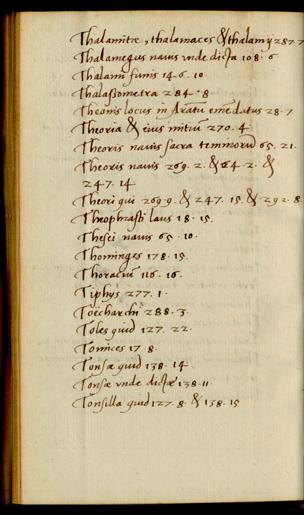 Thalamitæ, thalamaces & thalamij 287. 7
Thalamegus nauis vnde dicta 108. 6
Thalami funis 14. 6. 10
Thalassometra 284. 8
Theonis locus in Aratū emēdatus 28. 7
Theoria & eius initiū 270. 4
Theoris nauis sacra temmorū 65. 21.
Theoris nauis 269. 2. & 64. 2. &
247. 14
Theori qui 269. 9. & 247. 15. & 292. 8
Theophrasti laus 18. 15.
Thesei nauis 65. 10.
Thominges 178. 15.
Thoraciū 116. 16.
Tiphys 277. 1.
Toecharchi 288. 3.
Toles quid 127. 22.
Tomices 17. 8.
Tonsæ quid 138. 14.
Tonsæ vnde dictæ 138. 11.
Tonsilla quid 127. 8. & 138. 15